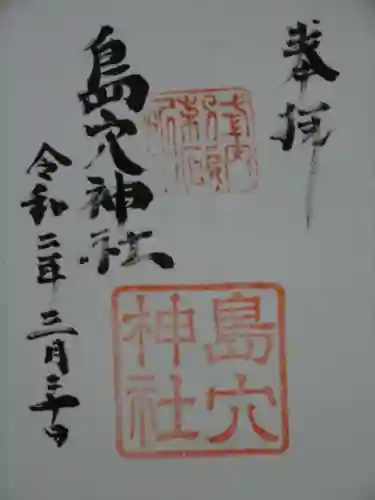 奉拝
島穴神社
令和二年三月二十日
島穴
神社